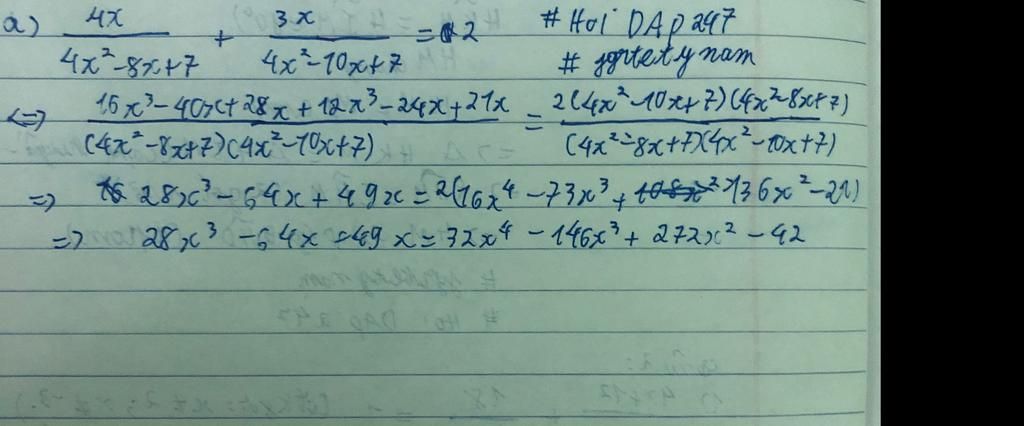 a) 4x / 4x² - 8x + 7 + 3x / 4x² - 10x + 7 = 2 # Hoi DAP 247
# jgrtekynam
<=> 16x³ - 40x + 28x + 12x³ - 24x + 21x / (4x² - 8x + 7)(4x² - 10x + 7) = 2(4x² - 10x + 7)(4x² - 8x + 7) / (4x² - 8x + 7)(4x² - 10x + 7)
=> 28x³ - 64x + 49x = 2(16x⁴ - 73x³ + 136x² - 21)
=> 28x³ - 64x + 49x = 32x⁴ - 146x³ + 272x² - 42